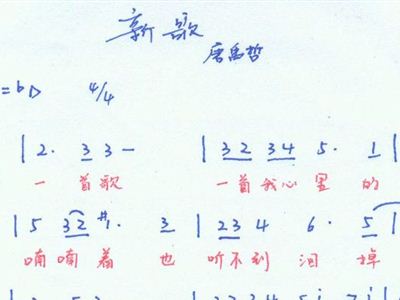 新歌
唐禹哲
=bD 4/4
|2. 3 3 — |32 34 5. 1|
一首歌 一首我心里的
|5 32 #1. 3 |23 4 6. 5|
喃喃着也 听不到泪掉